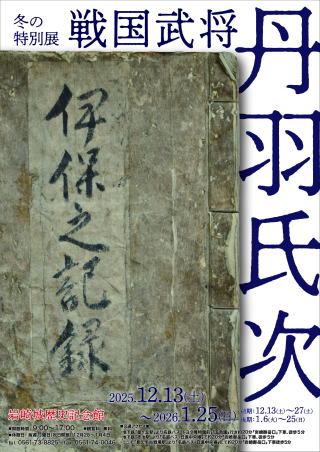 冬の
特別展
戦国武将
丹羽氏次
伊保之記録
2025.12.13(土)
～2026.1.25(日)
前期：12.13(土)～27(土)
後期：1.6(火)～25(日)
岩崎城歴史記念館
■開館時間：9:00～17:00
TEL 0561-73-8825